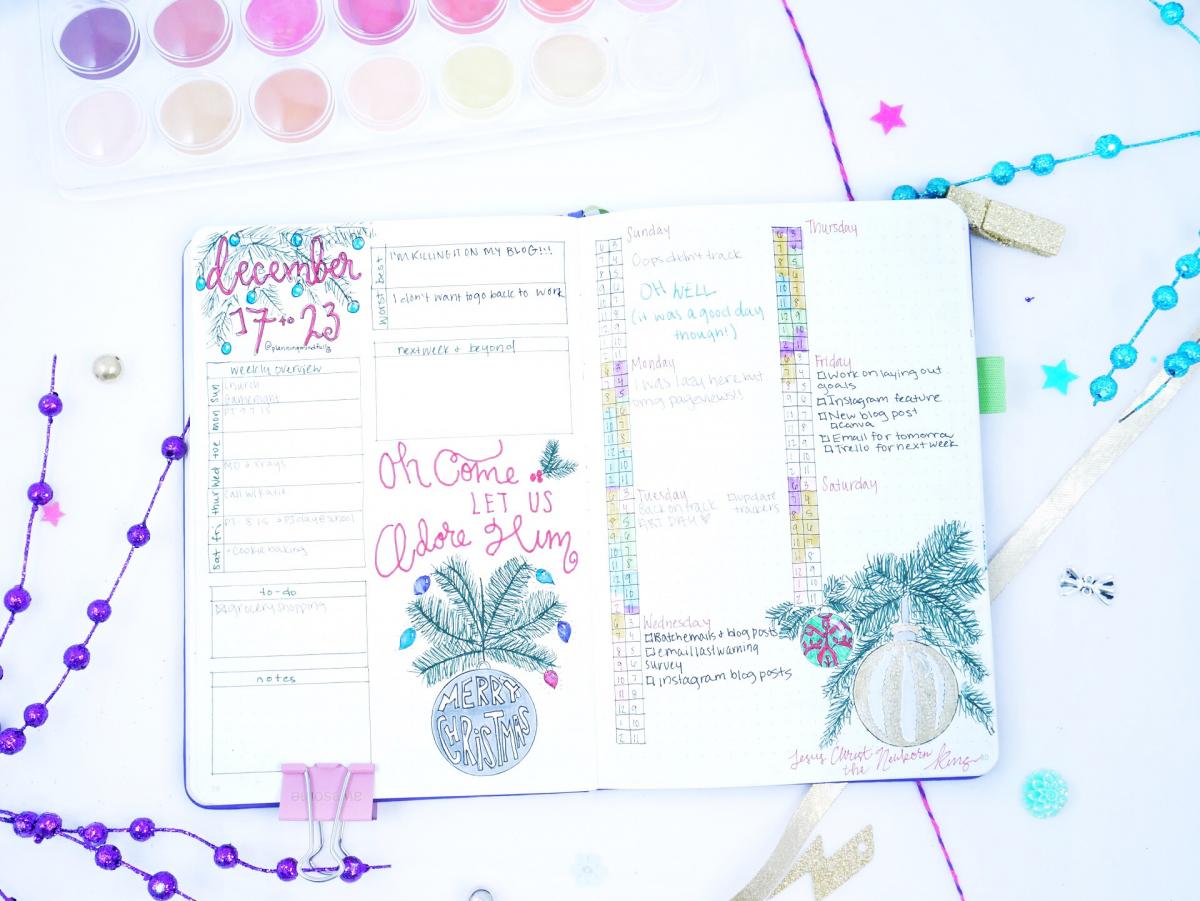 december
17 to 23
@planningmindfully
weekly overview
sun
Church
Gamenight
mon
PT 9 7 15
tue
wed
MD & xrays
thur
Call w/ Karie
fri
PT 8 15 → PJ day @ school
sat
→ Cookie baking
to-do
grocery shopping
notes
awesome
best
I'M KILLING IT ON MY BLOG!!!
worst
I don't want to go back to work
next week + beyond
Oh Come
LET US
Adore Him
MERRY
CHRISTMAS
Sunday
Oops didn't track
OH WELL
(it was a good day
though!)
Monday
I was lazy here but
omg pageviews!!
Tuesday
Back on track
update
trackers
Wednesday
Batch emails & blog posts
email last warning
survey
instagram blog posts
Thursday
Friday
Work on laying out
goals
Instagram feature
New blog post
Canva
Email for tomorrow
Trello for next week
Saturday
Jesus Christ
the Newborn King